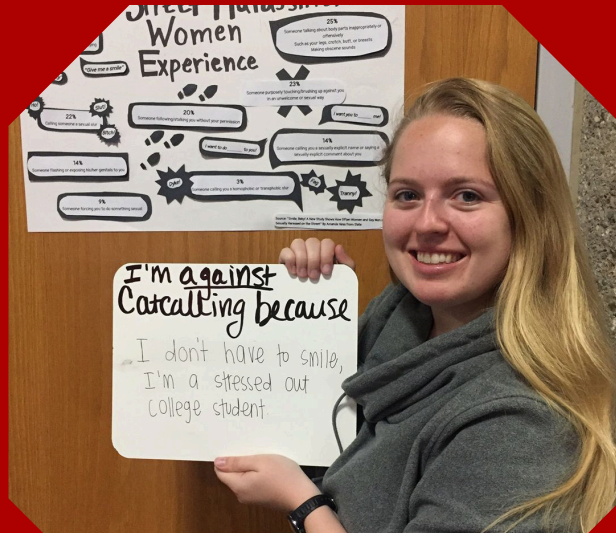 Street Harassment
Women
Experience
25%
Someone talking about body parts inappropriately or
offensively
Such as your legs, crotch, butt, or breasts.
Making obscene sounds
"Give me a smile"
23%
Someone purposely touching/brushing up against you
in an unwelcome or sexual way
I want you to ______ me!
22%
Calling someone a sexual slur
Slut!
Bitch!
20%
Someone following/stalking you without your permission
I want to do ______ to you!
14%
Someone calling you a sexually explicit name or saying a
sexually explicit comment about you
14%
Someone flashing or exposing his/her genitals to you
Dyke!
3%
Someone calling you a homophobic or transphobic slur
Tranny!
9%
Someone forcing you to do something sexual
I'm against
Catcalling because
I don't have to smile,
I'm a stressed out
college student